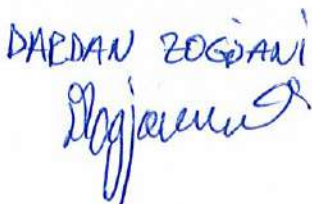 DARDAN ZOGJANI